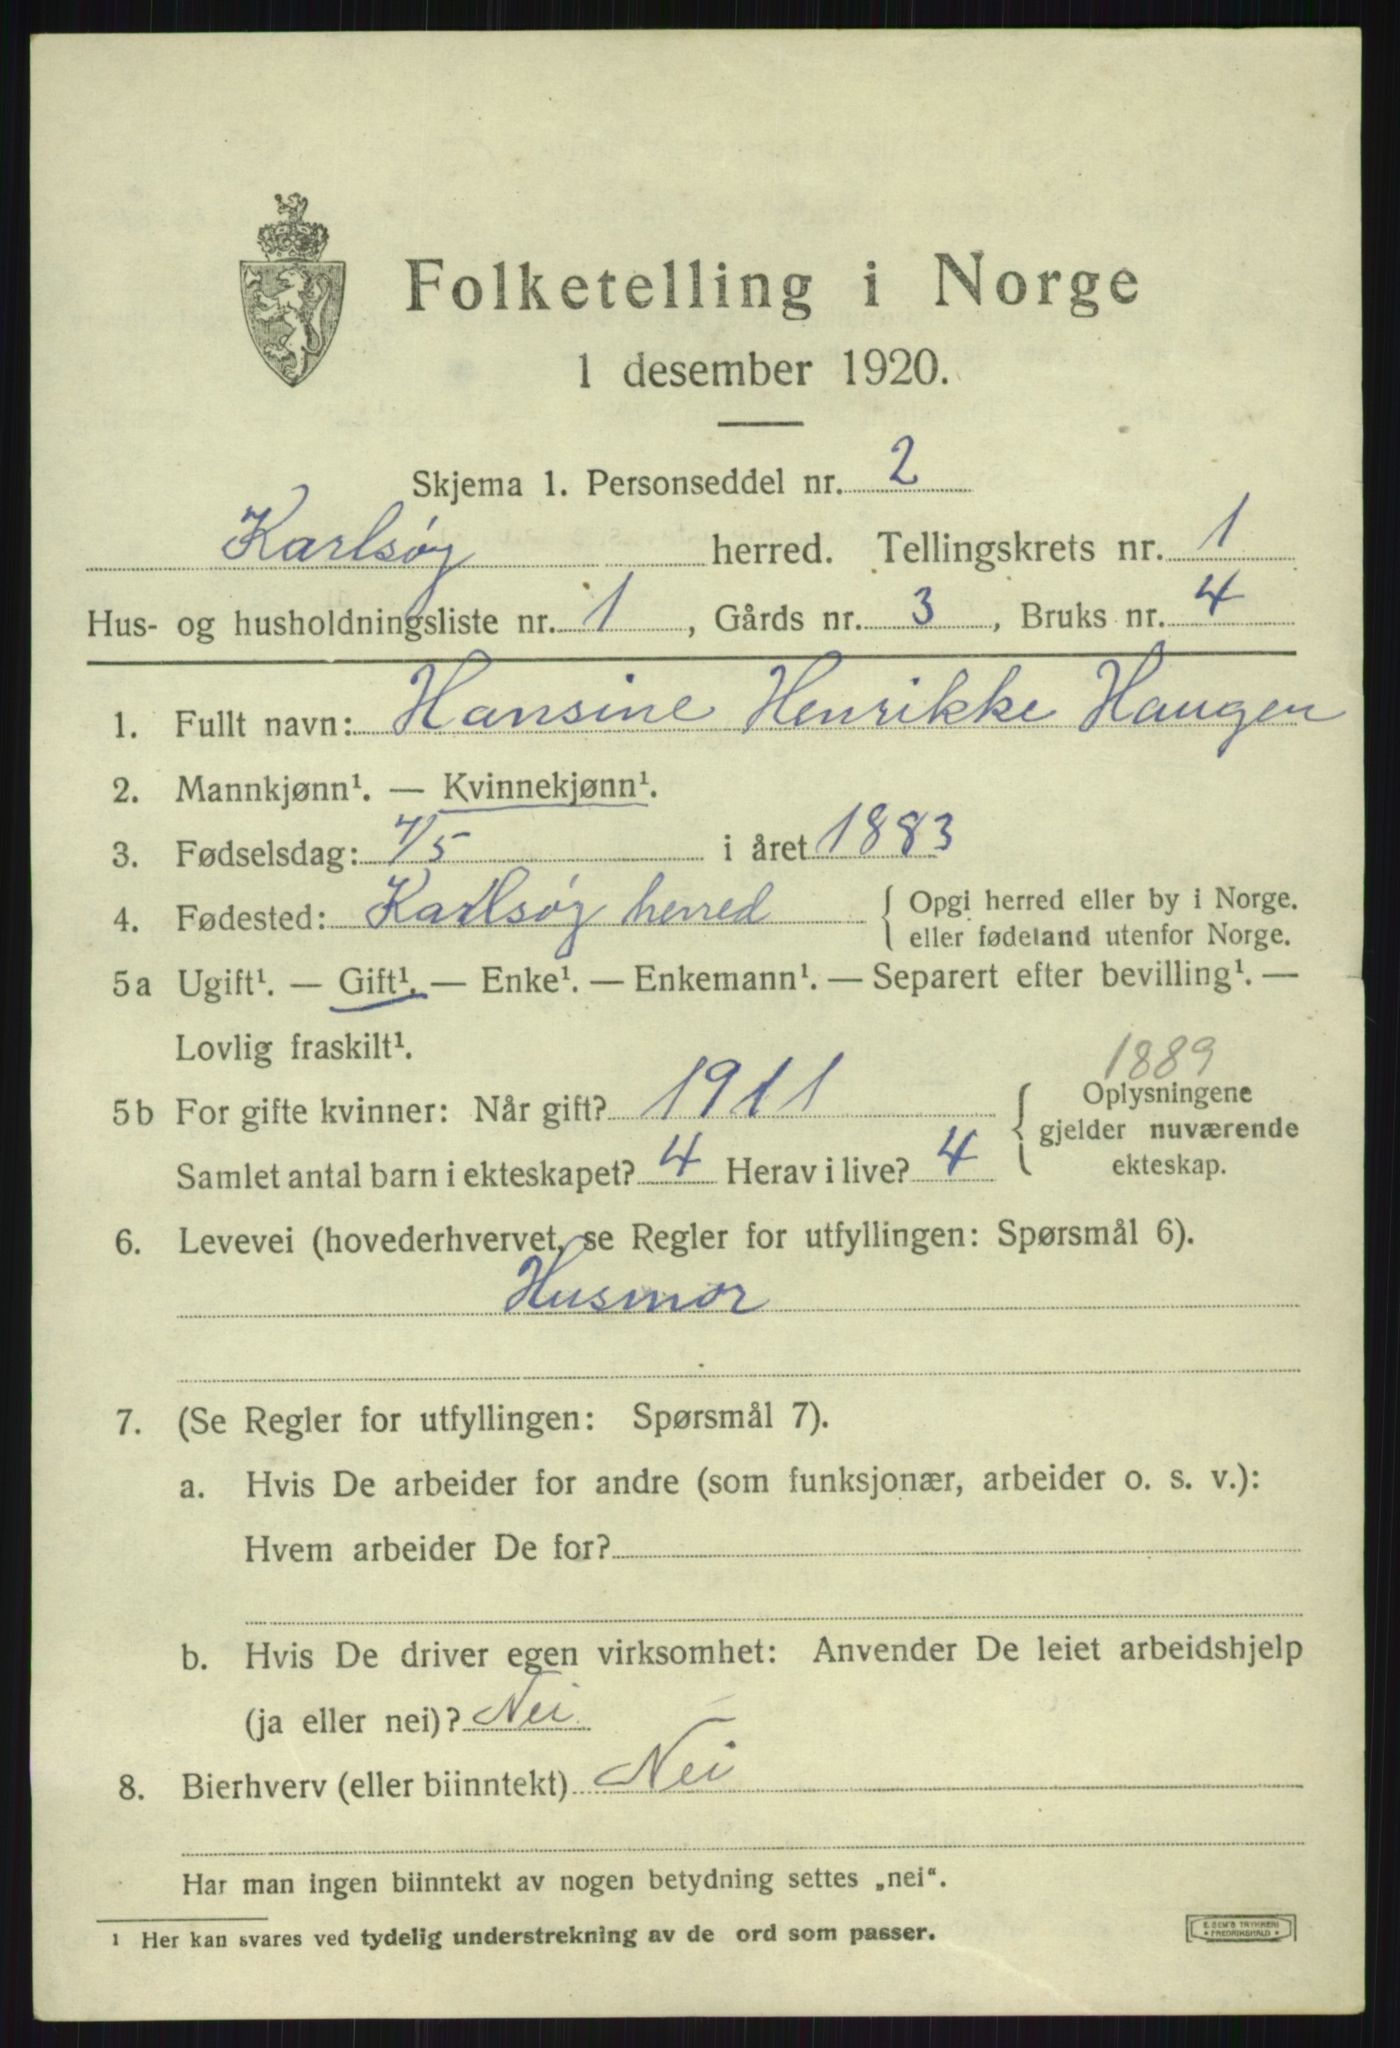 Folketelling i Norge
1 desember 1920.
Skjema 1. Personseddel nr. 2
Karlsøy herred. Tellingskrets nr. 1
Hus- og husholdningsliste nr. 1, Gårds nr. 3, Bruks nr. 4
1. Fullt navn: Hansine Henrikke Haugen
2. Mannkjønn¹. — Kvinnekjønn¹.
3. Fødselsdag: 4/5 i året 1883
4. Fødested: Karlsøy herred { Opgi herred eller by i Norge.
eller fødeland utenfor Norge.
5a Ugift¹. — Gift¹. — Enke¹. — Enkemann¹. — Separert efter bevilling¹. —
Lovlig fraskilt¹.
1889
5b For gifte kvinner: Når gift? 1911 { Oplysningene
gjelder nuværende
Samlet antal barn i ekteskapet? 4 Herav i live? 4 ekteskap.
6. Levevei (hovederhvervet, se Regler for utfyllingen: Spørsmål 6).
Husmor
7. (Se Regler for utfyllingen: Spørsmål 7).
a. Hvis De arbeider for andre (som funksjonær, arbeider o. s. v.):
Hvem arbeider De for?
b. Hvis De driver egen virksomhet: Anvender De leiet arbeidshjelp
(ja eller nei)? Nei
8. Bierhverv (eller biinntekt) Nei
Har man ingen biinntekt av nogen betydning settes „nei“.
¹ Her kan svares ved tydelig understrekning av de ord som passer.
E. SEM'S TRYKKERI
FREDRIKSHALD